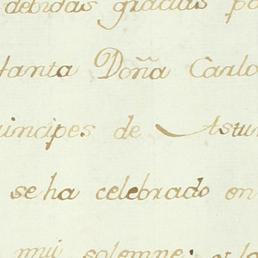 debidas gracias po
fanta Doña Carlo
rincipes de Astur
se ha celebrado en
mui solemne; y la